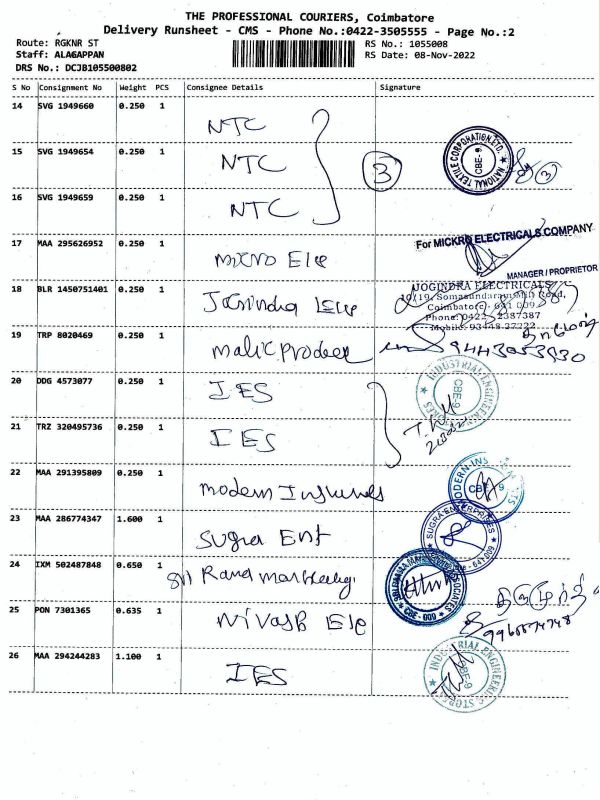 THE PROFESSIONAL COURIERS, Coimbatore
Delivery Runsheet - CMS - Phone No.:0422-3505555 - Page No.:2
Route: RGKNR ST
RS No.: 1055008
Staff: ALAGAPPAN
RS Date: 08-Nov-2022
DRS No.: DCJB105500802
S No Consignment No Weight PCS Consignee Details Signature
14 SVG 1949660 0.250 1 NTC
15 SVG 1949654 0.250 1 NTC 3
NATIONAL TEXTILE CORPORATION LTD. CBE-9
3
16 SVG 1949659 0.250 1 NTC
17 MAA 295626952 0.250 1 micro Ele
For MICKRO ELECTRICALS COMPANY
MANAGER / PROPRIETOR
18 BLR 1450751401 0.250 1 Jogindra Ele
JOGINDRA ELECTRICALS
10/19, Somasundaram Mill Road,
Coimbatore - 641 009
Phone: 0422 - 2387387
Mobile: 93448 37222
19 TRP 8020469 0.250 1
20 DDG 4573077 0.250 1 IES
INDUSTRIAL ENGINEERING STORES CBE-9
21 TRZ 320495736 0.250 1 IES
22 MAA 291395809 0.250 1 modern
MODERN-INS CBE-9
23 MAA 286774347 1.600 1 Sugra Ent
SUGRA ENTERPRISES
24 IXM 502487848 0.650 1 Sri Rama
CBE - 009
25 PON 7301365 0.635 1 Ele
26 MAA 294244283 1.100 1 IES
INDUSTRIAL ENGINEERING STORES CBE-9